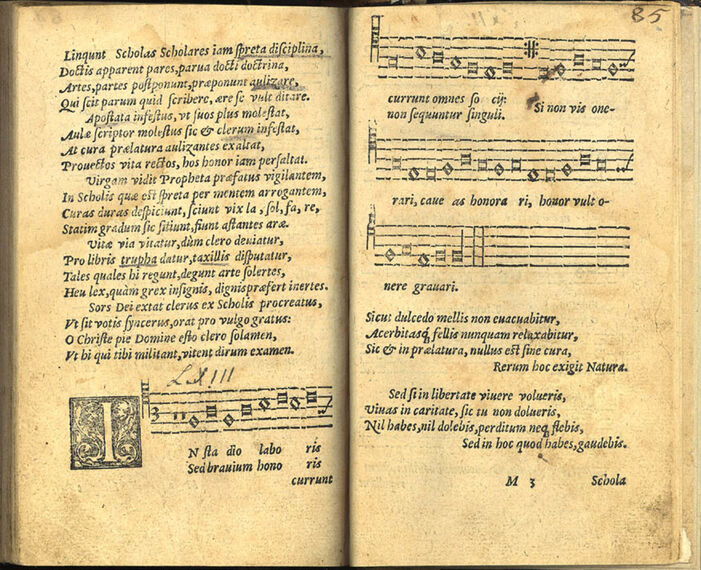 Linqunt Scholas Scholares iam spreta disciplina,
Doctis apparent pares, parua docti doctrina,
Artes, partes postponunt, præponunt aulizare,
Qui scit parum quid scribere, ære se vult ditare.
Apostata infestus, vt suos plus molestat,
Aulæ scriptor molestus sic & clerum infestat,
At cura prælatura aulizantes exaltat,
Prouectos vita rectos, hos honor iam persaltat.
Virgam vidit Propheta præfatus vigilantem,
In Scholis quæ est spreta per mentem arrogantem,
Curas duras despiciunt, sciunt vix la, sol, fa, re,
Statim gradum sic sitiunt, fiunt astantes aræ.
Vitæ via vitatur, dùm clero deuiatur,
Pro libris trupha datur, taxillis disputatur,
Tales quales hi regunt, degunt arte solertes,
Heu lex, quàm grex insignis, dignis præfert inertes.
Sors Dei extat clerus ex Scholis procreatus,
Vt sit votis syncerus, orat pro vulgo gratus:
O Christe pie Domine esto clero solamen,
Vt hi qui tibi militant, vitent dirum examen.
III
IN sta dio labo ris
Sed brauium hono ris
currunt
85
currunt omnes so cij: Si non vis one-
non sequuntur singuli.
rari, caue as honora ri, honor vult o-
nere grauari.
Sicut dulcedo mellis non euacuabitur,
Acerbitasq́ fellis nunquam relaxabitur,
Sic & in prælatura, nullus est sine cura,
Rerum hoc exigit Natura.
Sed si in libertate viuere volueris,
Viuas in caritate, sic tu non dolueris,
Nil habes, nil dolebis, perditum neq́ flebis,
Sed in hoc quod habes, gaudebis.
M 3 Schola